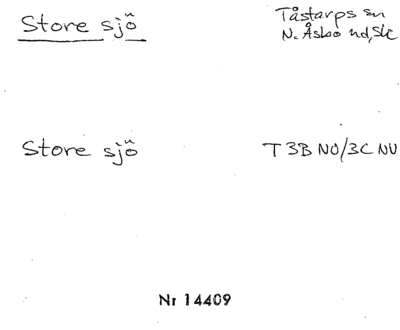 Store sjö
Tåstarps sn
N. Åsbo hd, Sk
Store sjö
T 3B NO/3C NV
Nr 14409